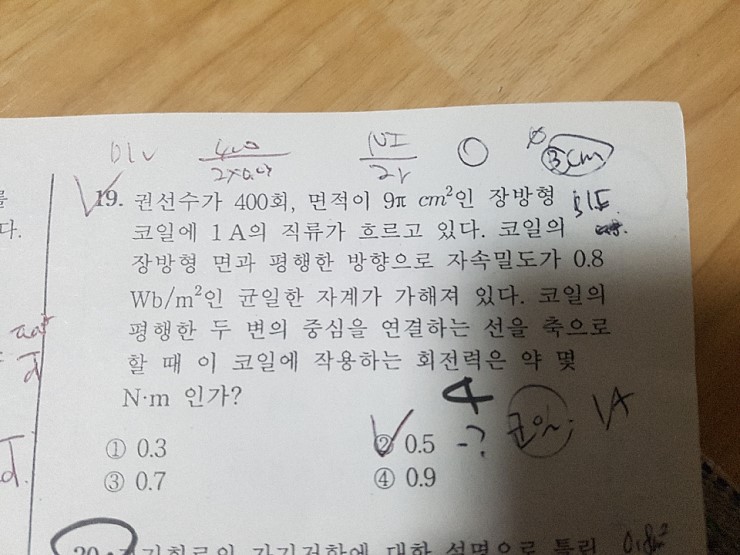 400
NI
2r
3cm
19. 권선수가 400회, 면적이 9π cm²인 장방형
코일에 1 A의 직류가 흐르고 있다. 코일의
장방형 면과 평행한 방향으로 자속밀도가 0.8
Wb/m²인 균일한 자계가 가해져 있다. 코일의
평행한 두 변의 중심을 연결하는 선을 축으로
할 때 이 코일에 작용하는 회전력은 약 몇
N·m 인가?
4
① 0.3 ② 0.5 →? 1A
③ 0.7 ④ 0.9
20. 자기회로의 자기저항에 대한 설명으로 틀린
를
다.
d
d.